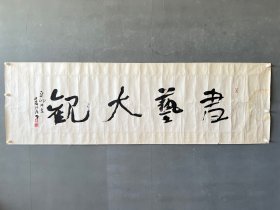 書藝大觀